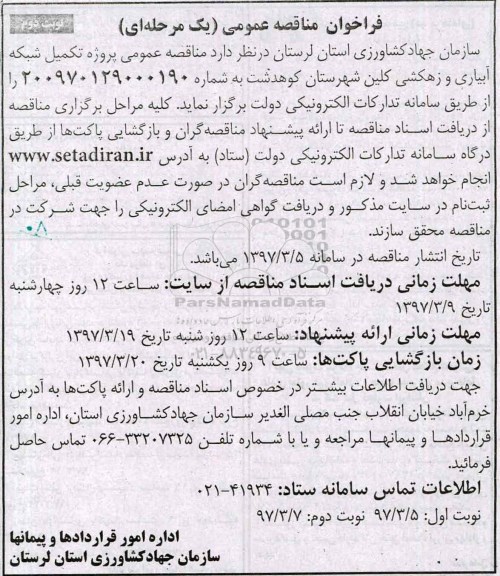 نوبت دوم
فراخوان مناقصه عمومی (یک مرحله‌ای)
سازمان جهادکشاورزی استان لرستان درنظر دارد مناقصه عمومی پروژه تکمیل شبکه
آبیاری و زهکشی کلین شهرستان کوهدشت به شماره ۲۰۰۹۷۰۱۲۹۰۰۰۱۹۰ را
از طریق سامانه تدارکات الکترونیکی دولت برگزار نماید. کلیه مراحل برگزاری مناقصه
از دریافت اسناد مناقصه تا ارائه پیشنهاد مناقصه‌گران و بازگشایی پاکت‌ها از طریق
درگاه سامانه تدارکات الکترونیکی دولت (ستاد) به آدرس www.setadiran.ir
انجام خواهد شد و لازم است مناقصه‌گران در صورت عدم عضویت قبلی، مراحل
ثبت‌نام در سایت مذکور و دریافت گواهی امضای الکترونیکی را جهت شرکت در
مناقصه محقق سازند.
۰۸
تاریخ انتشار مناقصه در سامانه ۱۳۹۷/۳/۵ می‌باشد.
مهلت زمانی دریافت اسناد مناقصه از سایت: ساعت ۱۲ روز چهارشنبه
تاریخ ۱۳۹۷/۳/۹
ParsNamadData
مهلت زمانی ارائه پیشنهاد: ساعت ۱۲ روز شنبه تاریخ ۱۳۹۷/۳/۱۹
زمان بازگشایی پاکت‌ها: ساعت ۹ روز یکشنبه تاریخ ۱۳۹۷/۳/۲۰
جهت دریافت اطلاعات بیشتر در خصوص اسناد مناقصه و ارائه پاکت‌ها به آدرس
خرم‌آباد خیابان انقلاب جنب مصلی الغدیر سازمان جهادکشاورزی استان، اداره امور
قراردادها و پیمانها مراجعه و یا با شماره تلفن ۳۳۲۰۷۳۲۵-۰۶۶ تماس حاصل
فرمائید.
اطلاعات تماس سامانه ستاد: ۴۱۹۳۴-۰۲۱
نوبت اول: ۹۷/۳/۵ نوبت دوم: ۹۷/۳/۷
اداره امور قراردادها و پیمانها
سازمان جهادکشاورزی استان لرستان